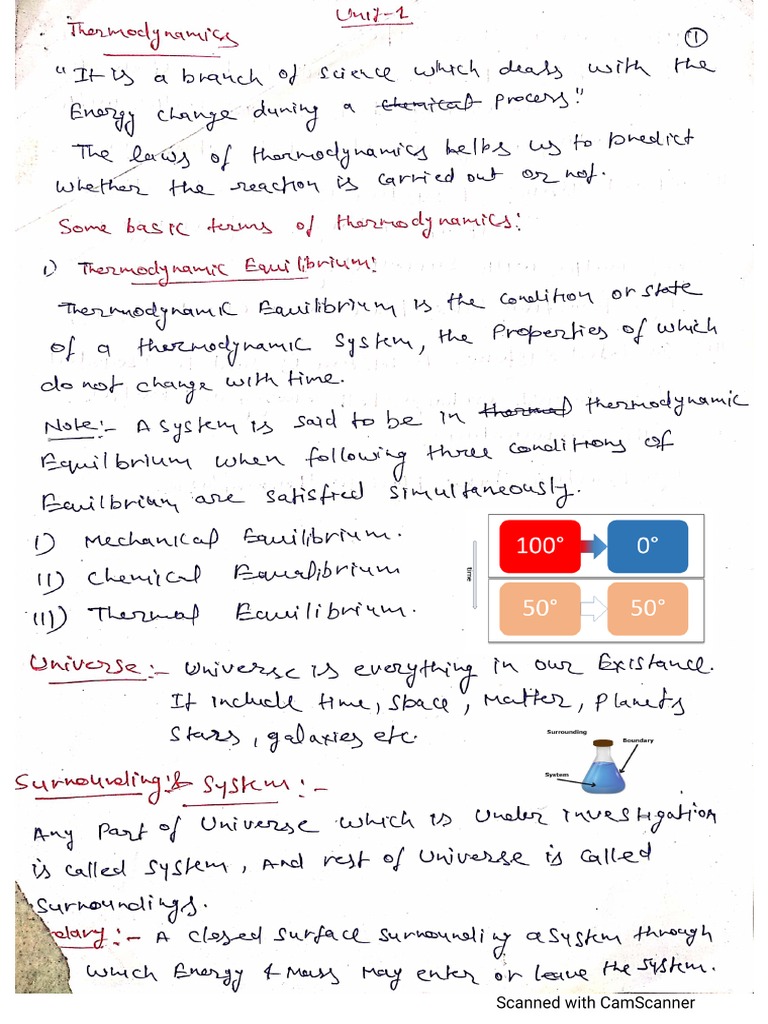 Unit-1
Thermodynamics
①
"It is a branch of science which deals with the
Energy change during a chemical process."
The laws of thermodynamics helps us to predict
whether the reaction is carried out or not.
Some basic terms of thermodynamics:
i) Thermodynamic Equilibrium:
Thermodynamic Equilibrium is the condition or state
of a thermodynamic system, the properties of which
do not change with time.
Note:- A system is said to be in thermal thermodynamic
Equilbrium when following three conditions of
Equilbrium are satisfied simultaneously.
I) Mechanical Equilibrium.
II) Chemical Equilibrium
III) Thermal Equilibrium.
100° 0°
time
50° 50°
Universe:- Universe is everything in our Existance.
It include time, space, matter, planets
Stars, galaxies etc.
Surrounding
Boundary
System
Surrounding & System:-
Any part of Universe which is under investigation
is called system, and rest of Universe is called
Surroundings.
dary:- A closed surface surrounding a system through
which Energy & Mass may enter or leave the system.
Scanned with CamScanner